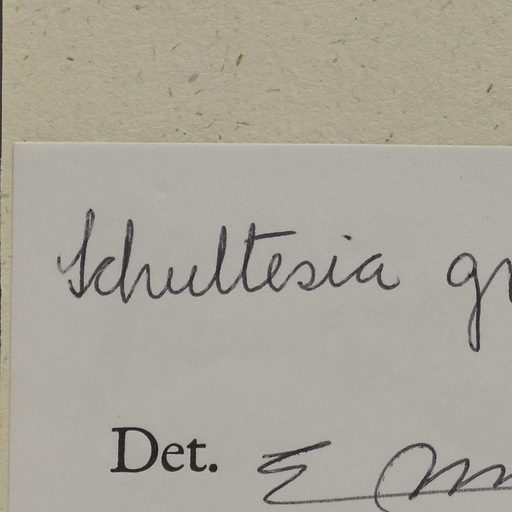 Schultesia
Det. E